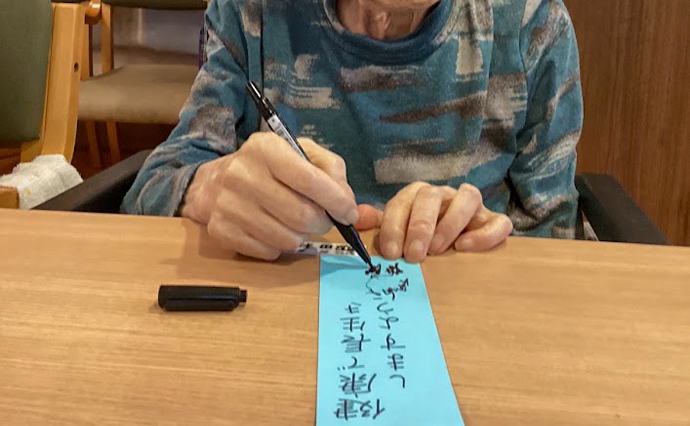 健康で長生き
しますように